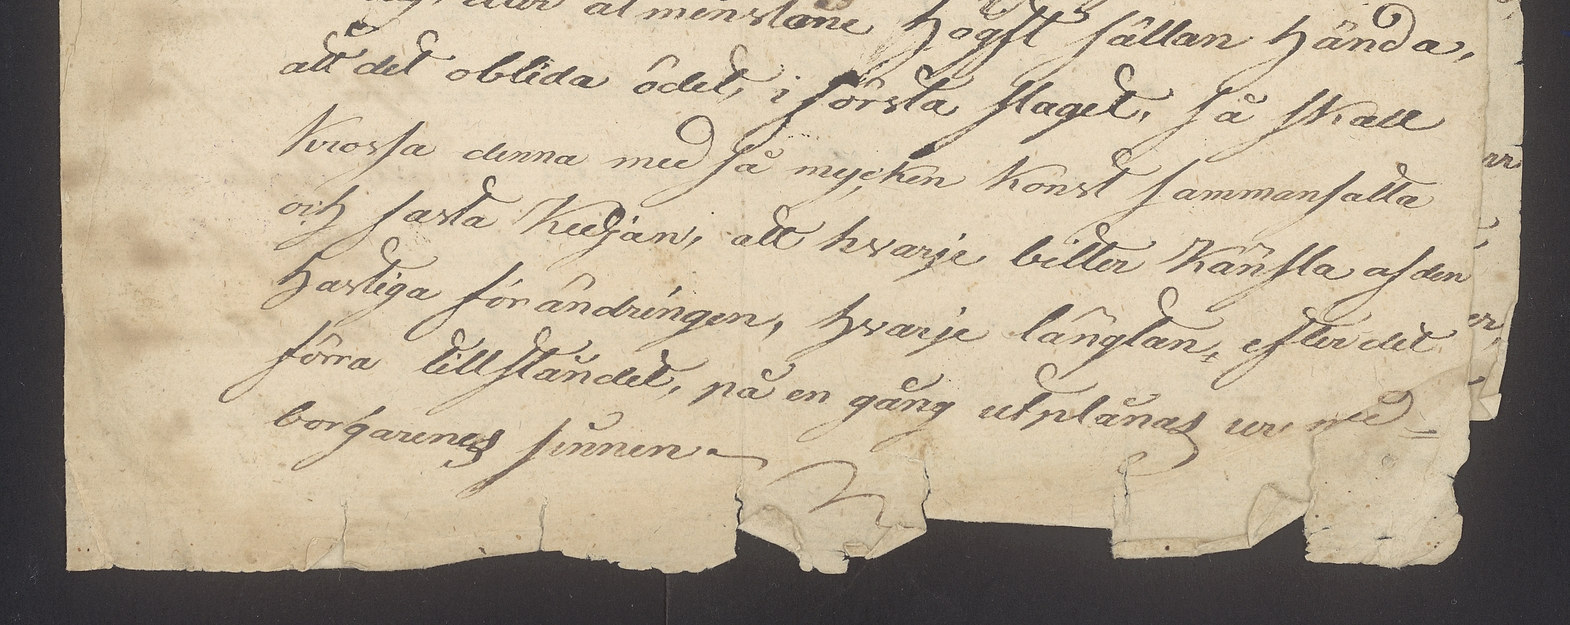 eller åtminstone högst sällan hända,
att det oblida ödet, i första slaget, så skall
krossa denna med så mycken konst sammansatta
och fasta Kedjan, att hvarje bitter känsla af den
hastiga förändringen, hvarje längtan, efter det
förra tillståndet, på en gång utplånas ur med-
borgarenes sinnen